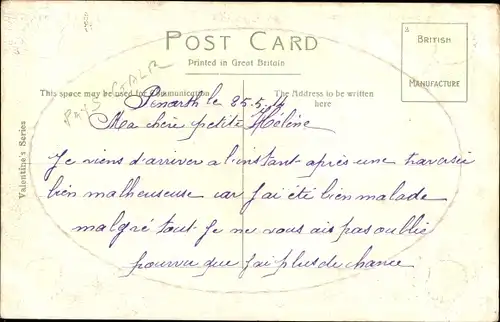 POST CARD
Printed in Great Britain
BRITISH
MANUFACTURE
This space may be used for Communication
The Address to be written
here
Valentine's Series
PAYS GALR
Penarth le 25.5.14
Ma chère petite Hélène
Je viens d'arriver a l'instant après une traversée
bien malheureuse car j'ai été bien malade
malgré tout Je ne vous ais pas oublié
pourvu que j'ai plus de chance